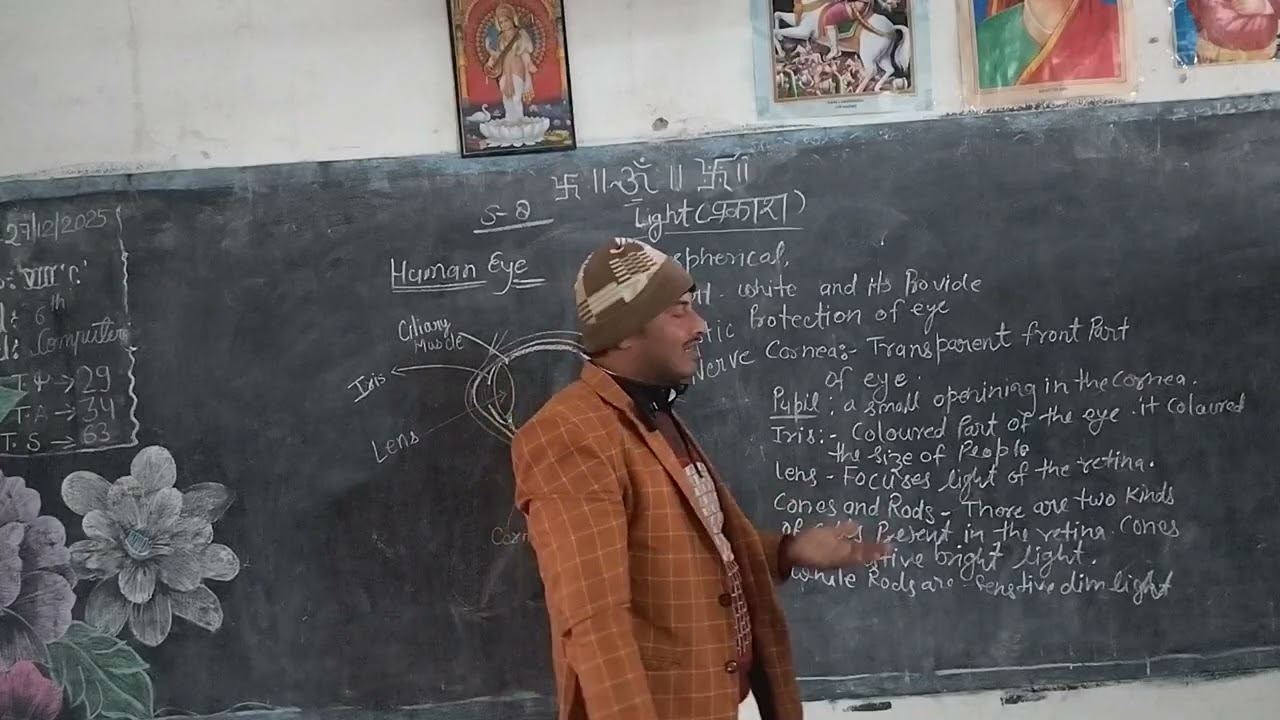 卐 ॥ ॐ ॥ 卐॥
S-8
Light (प्रकाश)
27/12/2025
VIII 'C'
6th
Computer
T. Ψ → 29
T. A → 34
T. S → 63
Human Eye
Ciliary
Muscle
Iris
Lens
Corn
spherical,
white and its Provide
Protection of eye
Nerve Cornea:- Transparent front Part
of eye.
Pupil : a small openining in the Cornea.
Iris:- Coloured Part of the eye. it Coloured
the size of People
Lens - Focuses light of the retina.
Cones and Rods - There are two Kinds
of Present in the retina. Cones
bright light.
while Rods are Senstive dim light